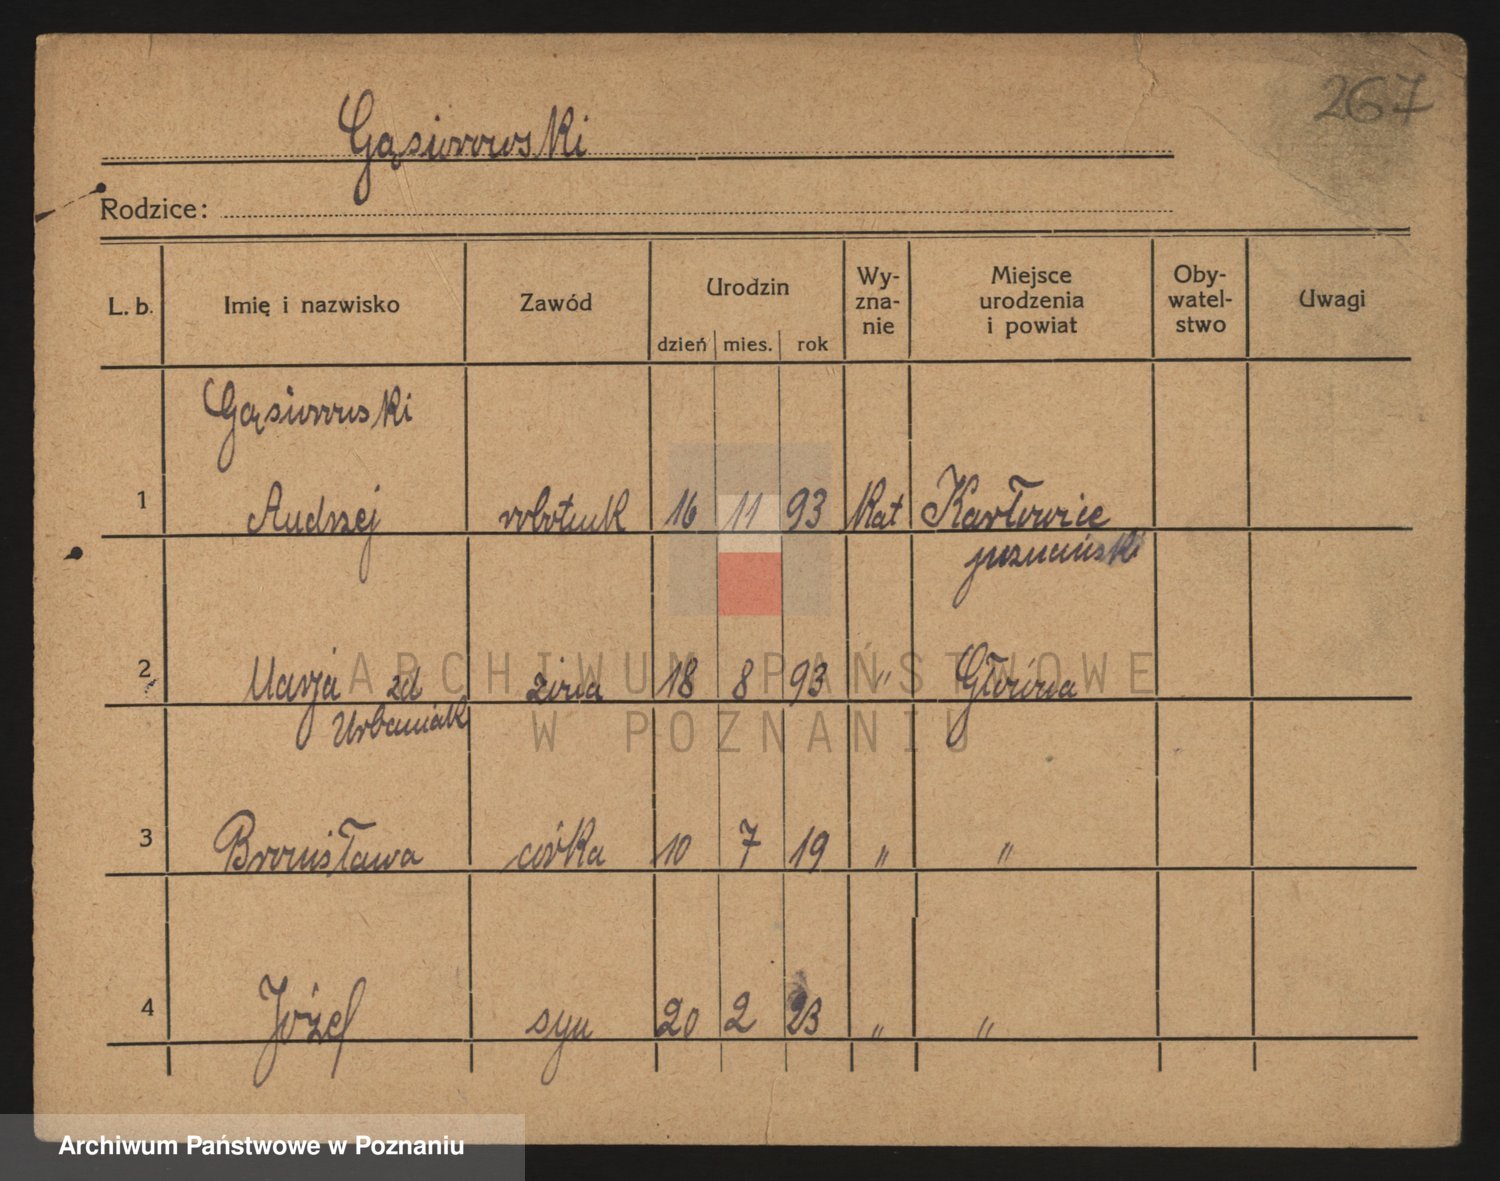 267
Gąsiorowski
Rodzice:
L. b. Imię i nazwisko Zawód Urodzin dzień mies. rok Wy-zna-nie Miejsce urodzenia i powiat Oby-watel-stwo Uwagi
Gąsiorowski
1 Andrzej robotnik 16 11 93 Kat Karłowice
poznański
2 Marja zd żona 18 8 93 " Główna
Urbaniak
ARCHIWUM PAŃSTWOWE
W POZNANIU
3 Bronisława córka 10 7 19 " "
4 Józef syn 20 2 23 " "
Archiwum Państwowe w Poznaniu